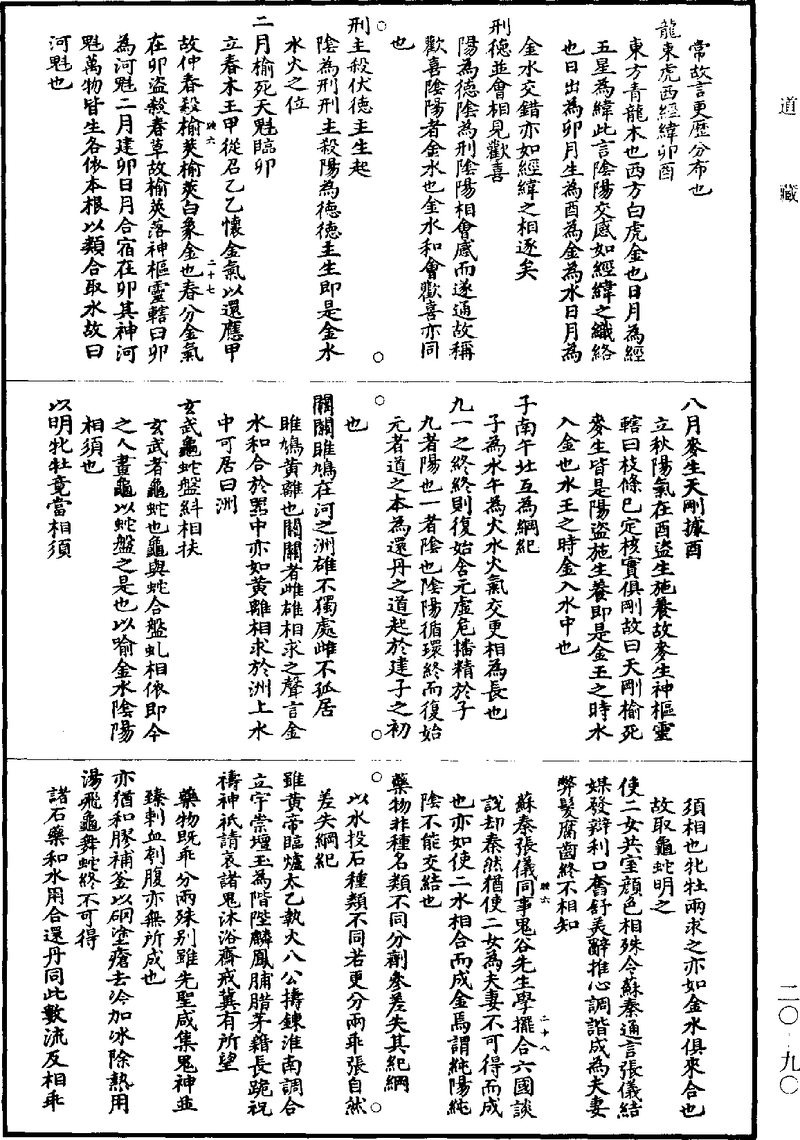 道藏
常故言更歷分布也
龍東虎西經緯卯酉
東方青龍木也西方白虎金也日月為經
五星為緯此言陰陽交感如經緯之織絡
也日出為卯月生為酉為金為水日月為
金水交錯亦如經緯之相逐矣
刑德並會相見歡喜
陽為德陰為刑陰陽相會感而遂通故稱
歡喜陰陽者金水也金水和會歡喜亦同
也
刑主殺伏德主生起
陰為刑刑主殺陽為德德主生即是金水
水火之位
二月榆死天魁臨卯
立春木王甲從召乙乙懷金氣以還應甲
故仲春殺榆莢榆莢白象金也春分金氣
在卯盜殺春草故榆莢落神樞靈轄曰卯
為河魁二月建卯日月合宿在卯其神河
魁萬物皆生各依本根以類合取水故曰
河魁也
八月麥生天剛據酉
立秋陽氣在酉盜生施養故麥生神樞靈
轄曰枝條已定核實俱剛故曰天剛榆死
麥生皆是陽盜施生養即是金王之時水
入金也水王之時金入水中也
子南午北互為綱紀
子為水午為火水火氣交更相為長也
九一之終終則復始含元虛危播精於子
九者陽也一者陰也陰陽循環終而復始
元者道之本為還丹之道起於建子之初
也
關關雎鳩在河之洲雄不獨處雌不孤居
雎鳩黃雞也關關者雌雄相求之聲言金
水和合於器中亦如黃雞相求於洲上水
中可居曰洲
玄武龜蛇盤糾相扶
玄武者龜蛇也龜與蛇合盤虬相依即今
之人畫龜以蛇盤之是也以喻金水陰陽
相須也
以明牝牡竟當相須
須相也牝牡兩求之亦如金水俱來合也
故取龜蛇明之
使二女共室顏色相殊令蘇秦通言張儀結
媒發辯利口奮舒美辭推心調諧成為夫妻
弊髮腐齒終不相知
蘇秦張儀同事鬼谷先生學擺合六國談
說却秦然猶使二女為夫妻不可得而成
也亦如使二水相合而成金焉謂純陽純
陰不能交結也
藥物非種名類不同分劑參差失其紀綱
以水投石種類不同若更分兩乖張自然
差失綱紀
雖黃帝臨爐太乙執火八公擣鍊淮南調合
立宇崇壇玉為階陛麟鳳脯腊茅藉長跪祝
禱神祇請哀諸鬼沐浴齋戒冀有所望
藥物既乖分兩殊別雖先聖咸集鬼神並
臻刺血刳腹亦無所成也
亦猶和膠補釜以硇塗瘡去冷加冰除熱用
湯飛龜舞蛇終不可得
諸石藥和水用合還丹同此數流反相乖
映六
二十七
映六
二十八
二〇·九〇